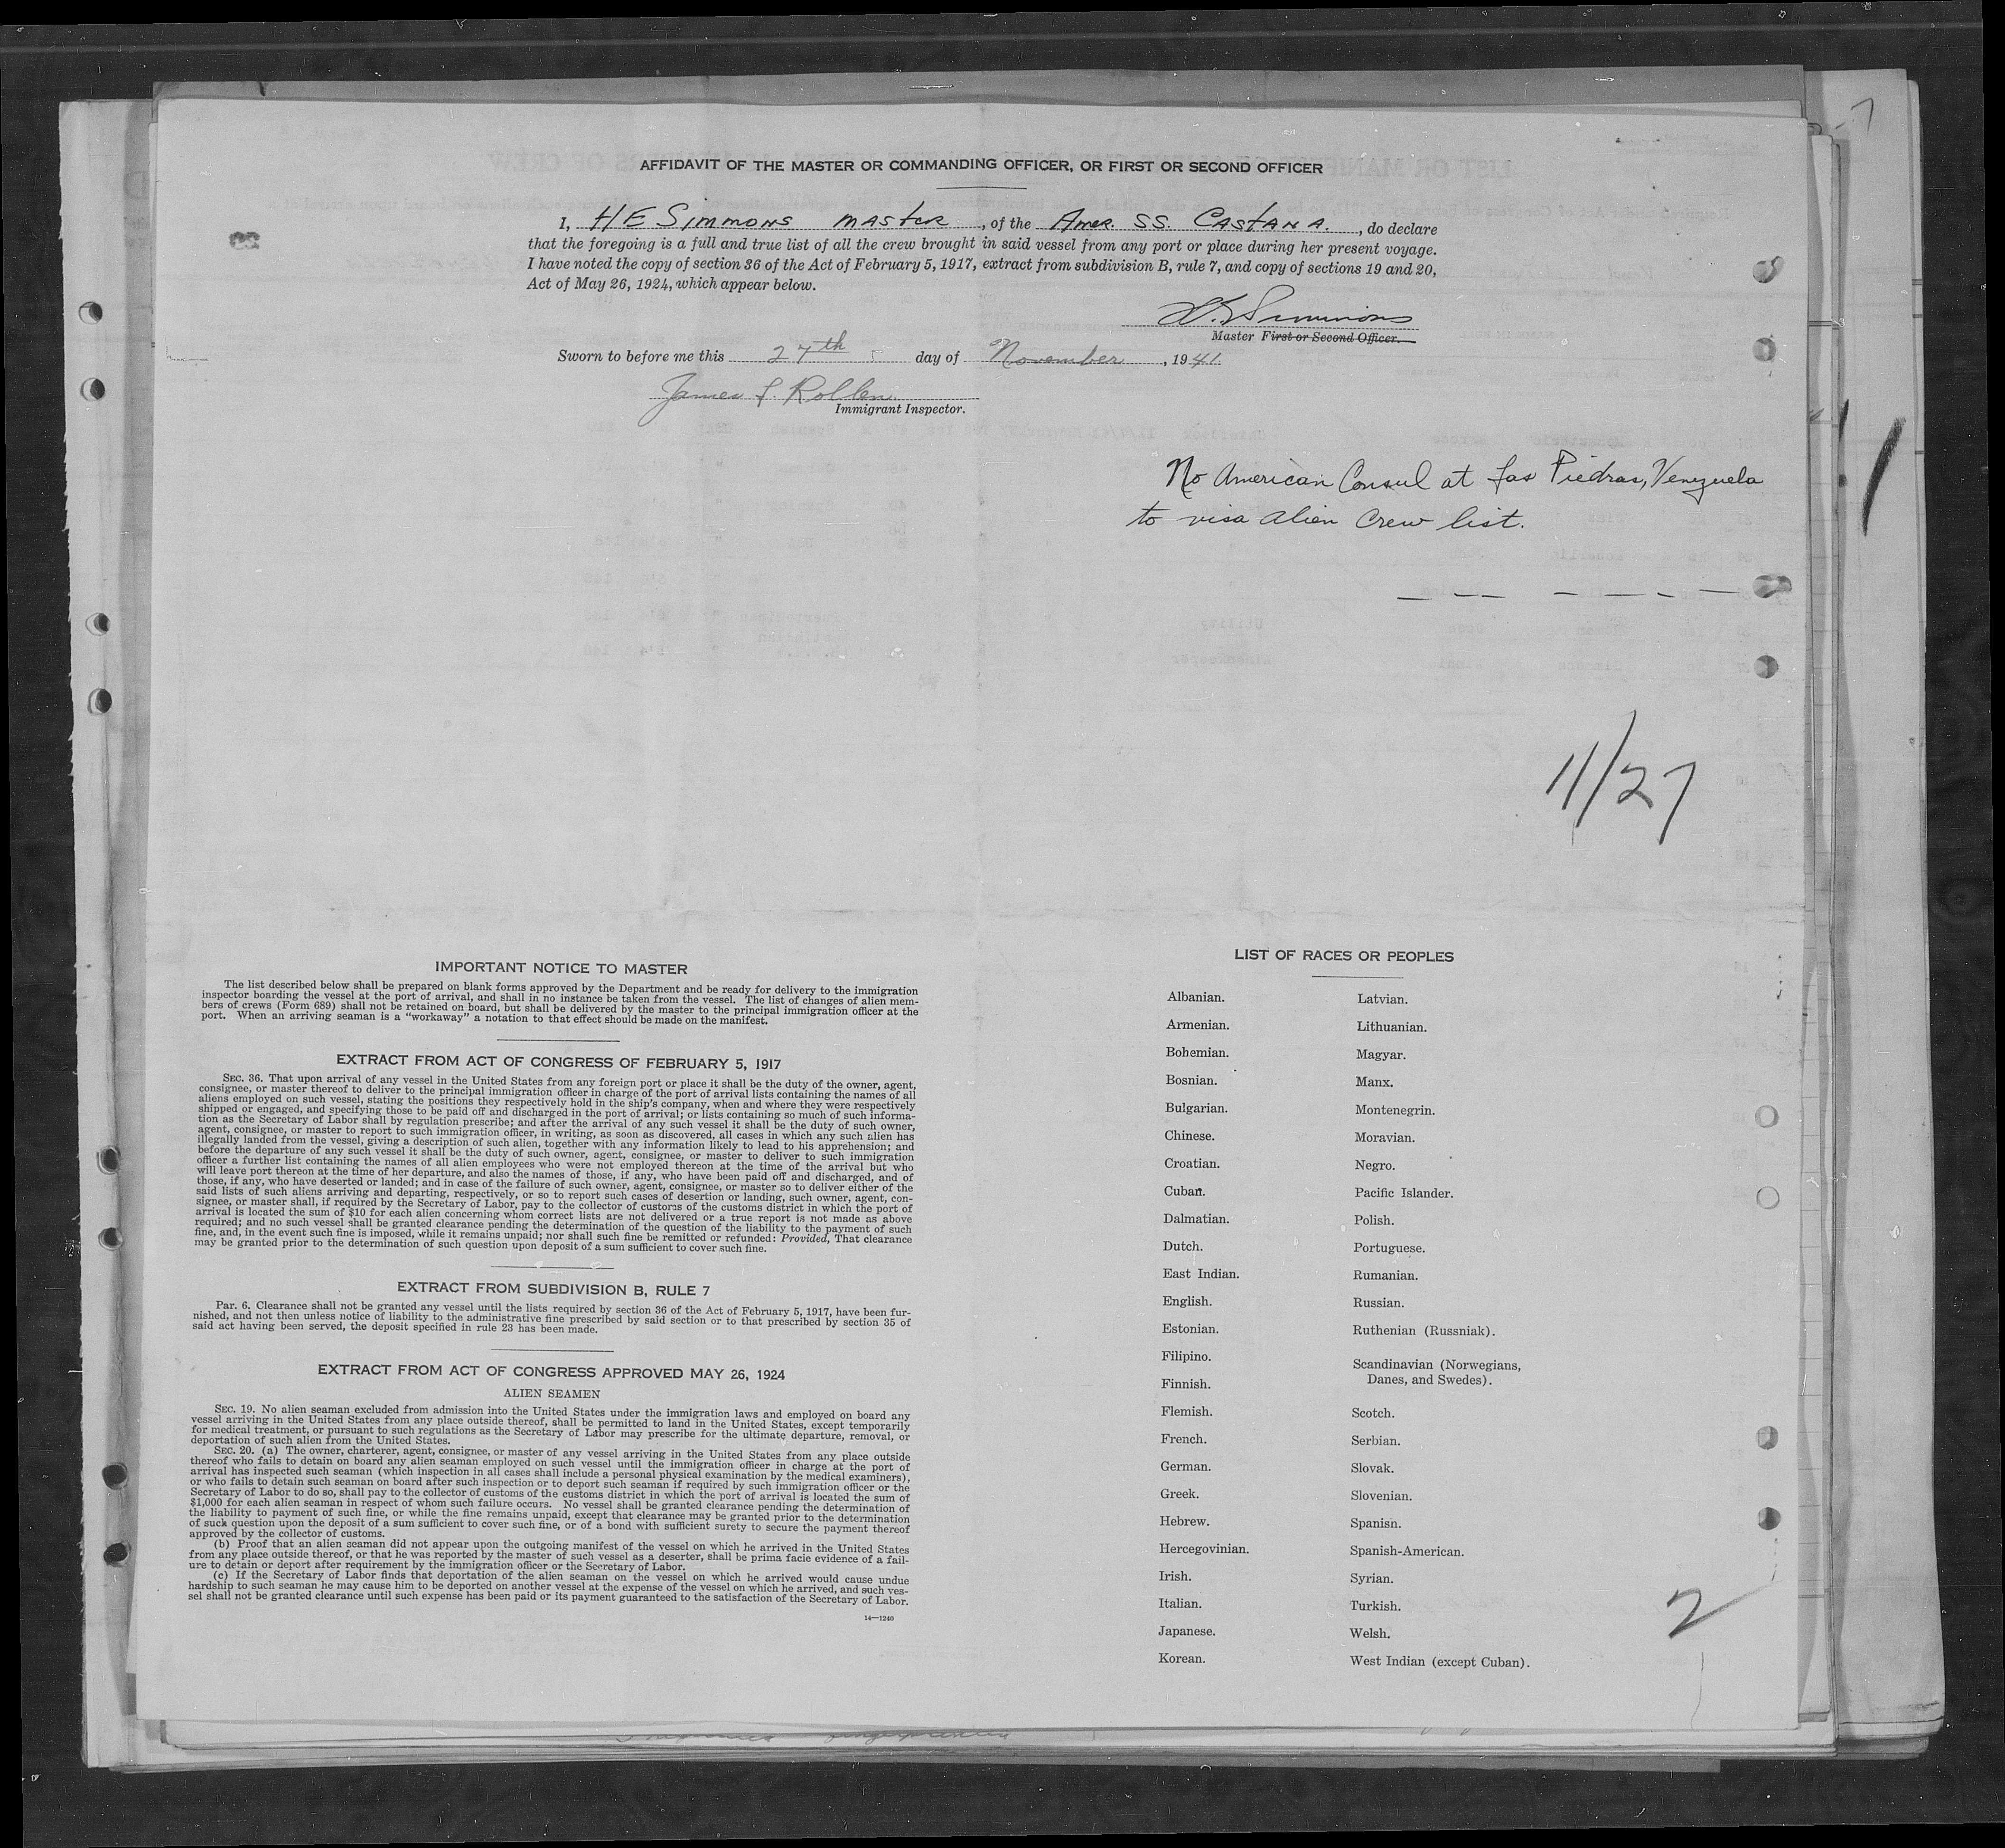 AFFIDAVIT OF THE MASTER OR COMMANDING OFFICER, OR FIRST OR SECOND OFFICER
I, H E Simmons master, of the Amer. SS. Castana., do declare
that the foregoing is a full and true list of all the crew brought in said vessel from any port or place during her present voyage.
I have noted the copy of section 36 of the Act of February 5, 1917, extract from subdivision B, rule 7, and copy of sections 19 and 20,
Act of May 26, 1924, which appear below.
H. E Simmons
Master First or Second Officer.
Sworn to before me this 27th day of November, 1941.
James Rollen
Immigrant Inspector.
No American Consul at Las Piedras, Venezuela
to visa alien Crew list.
11/27
IMPORTANT NOTICE TO MASTER
The list described below shall be prepared on blank forms approved by the Department and be ready for delivery to the immigration
inspector boarding the vessel at the port of arrival, and shall in no instance be taken from the vessel. The list of changes of alien mem-
bers of crews (Form 689) shall not be retained on board, but shall be delivered by the master to the principal immigration officer at the
port. When an arriving seaman is a "workaway" a notation to that effect should be made on the manifest.
EXTRACT FROM ACT OF CONGRESS OF FEBRUARY 5, 1917
SEC. 36. That upon arrival of any vessel in the United States from any foreign port or place it shall be the duty of the owner, agent,
consignee, or master thereof to deliver to the principal immigration officer in charge of the port of arrival lists containing the names of all
aliens employed on such vessel, stating the positions they respectively hold in the ship's company, when and where they were respectively
shipped or engaged, and specifying those to be paid off and discharged in the port of arrival; or lists containing so much of such informa-
tion as the Secretary of Labor shall by regulation prescribe; and after the arrival of any such vessel it shall be the duty of such owner,
agent, consignee, or master to report to such immigration officer, in writing, as soon as discovered, all cases in which any such alien has
illegally landed from the vessel, giving a description of such alien, together with any information likely to lead to his apprehension; and
before the departure of any such vessel it shall be the duty of such owner, agent, consignee, or master to deliver to such immigration
officer a further list containing the names of all alien employees who were not employed thereon at the time of the arrival but who
will leave port thereon at the time of her departure, and also the names of those, if any, who have been paid off and discharged, and of
those, if any, who have deserted or landed; and in case of the failure of such owner, agent, consignee, or master so to deliver either of the
said lists of such aliens arriving and departing, respectively, or so to report such cases of desertion or landing, such owner, agent, con-
signee, or master shall, if required by the Secretary of Labor, pay to the collector of customs of the customs district in which the port of
arrival is located the sum of $10 for each alien concerning whom correct lists are not delivered or a true report is not made as above
required; and no such vessel shall be granted clearance pending the determination of the question of the liability to the payment of such
fine, and, in the event such fine is imposed, while it remains unpaid; nor shall such fine be remitted or refunded: Provided, That clearance
may be granted prior to the determination of such question upon deposit of a sum sufficient to cover such fine.
EXTRACT FROM SUBDIVISION B, RULE 7
Par. 6. Clearance shall not be granted any vessel until the lists required by section 36 of the Act of February 5, 1917, have been fur-
nished, and not then unless notice of liability to the administrative fine prescribed by said section or to that prescribed by section 35 of
said act having been served, the deposit specified in rule 23 has been made.
EXTRACT FROM ACT OF CONGRESS APPROVED MAY 26, 1924
ALIEN SEAMEN
SEC. 19. No alien seaman excluded from admission into the United States under the immigration laws and employed on board any
vessel arriving in the United States from any place outside thereof, shall be permitted to land in the United States, except temporarily
for medical treatment, or pursuant to such regulations as the Secretary of Labor may prescribe for the ultimate departure, removal, or
deportation of such alien from the United States.
SEC. 20. (a) The owner, charterer, agent, consignee, or master of any vessel arriving in the United States from any place outside
thereof who fails to detain on board any alien seaman employed on such vessel until the immigration officer in charge at the port of
arrival has inspected such seaman (which inspection in all cases shall include a personal physical examination by the medical examiners),
or who fails to detain such seaman on board after such inspection or to deport such seaman if required by such immigration officer or the
Secretary of Labor to do so, shall pay to the collector of customs of the customs district in which the port of arrival is located the sum of
$1,000 for each alien seaman in respect of whom such failure occurs. No vessel shall be granted clearance pending the determination of
the liability to payment of such fine, or while the fine remains unpaid, except that clearance may be granted prior to the determination
of such question upon the deposit of a sum sufficient to cover such fine, or of a bond with sufficient surety to secure the payment thereof
approved by the collector of customs.
(b) Proof that an alien seaman did not appear upon the outgoing manifest of the vessel on which he arrived in the United States
from any place outside thereof, or that he was reported by the master of such vessel as a deserter, shall be prima facie evidence of a fail-
ure to detain or deport after requirement by the immigration officer or the Secretary of Labor.
(c) If the Secretary of Labor finds that deportation of the alien seaman on the vessel on which he arrived would cause undue
hardship to such seaman he may cause him to be deported on another vessel at the expense of the vessel on which he arrived, and such ves-
sel shall not be granted clearance until such expense has been paid or its payment guaranteed to the satisfaction of the Secretary of Labor.
14—1240
LIST OF RACES OR PEOPLES
Albanian.
Armenian.
Bohemian.
Bosnian.
Bulgarian.
Chinese.
Croatian.
Cuban.
Dalmatian.
Dutch.
East Indian.
English.
Estonian.
Filipino.
Finnish.
Flemish.
French.
German.
Greek.
Hebrew.
Hercegovinian.
Irish.
Italian.
Japanese.
Korean.
Latvian.
Lithuanian.
Magyar.
Manx.
Montenegrin.
Moravian.
Negro.
Pacific Islander.
Polish.
Portuguese.
Rumanian.
Russian.
Ruthenian (Russniak).
Scandinavian (Norwegians,
Danes, and Swedes).
Scotch.
Serbian.
Slovak.
Slovenian.
Spanisn.
Spanish-American.
Syrian.
Turkish.
Welsh.
West Indian (except Cuban).
2